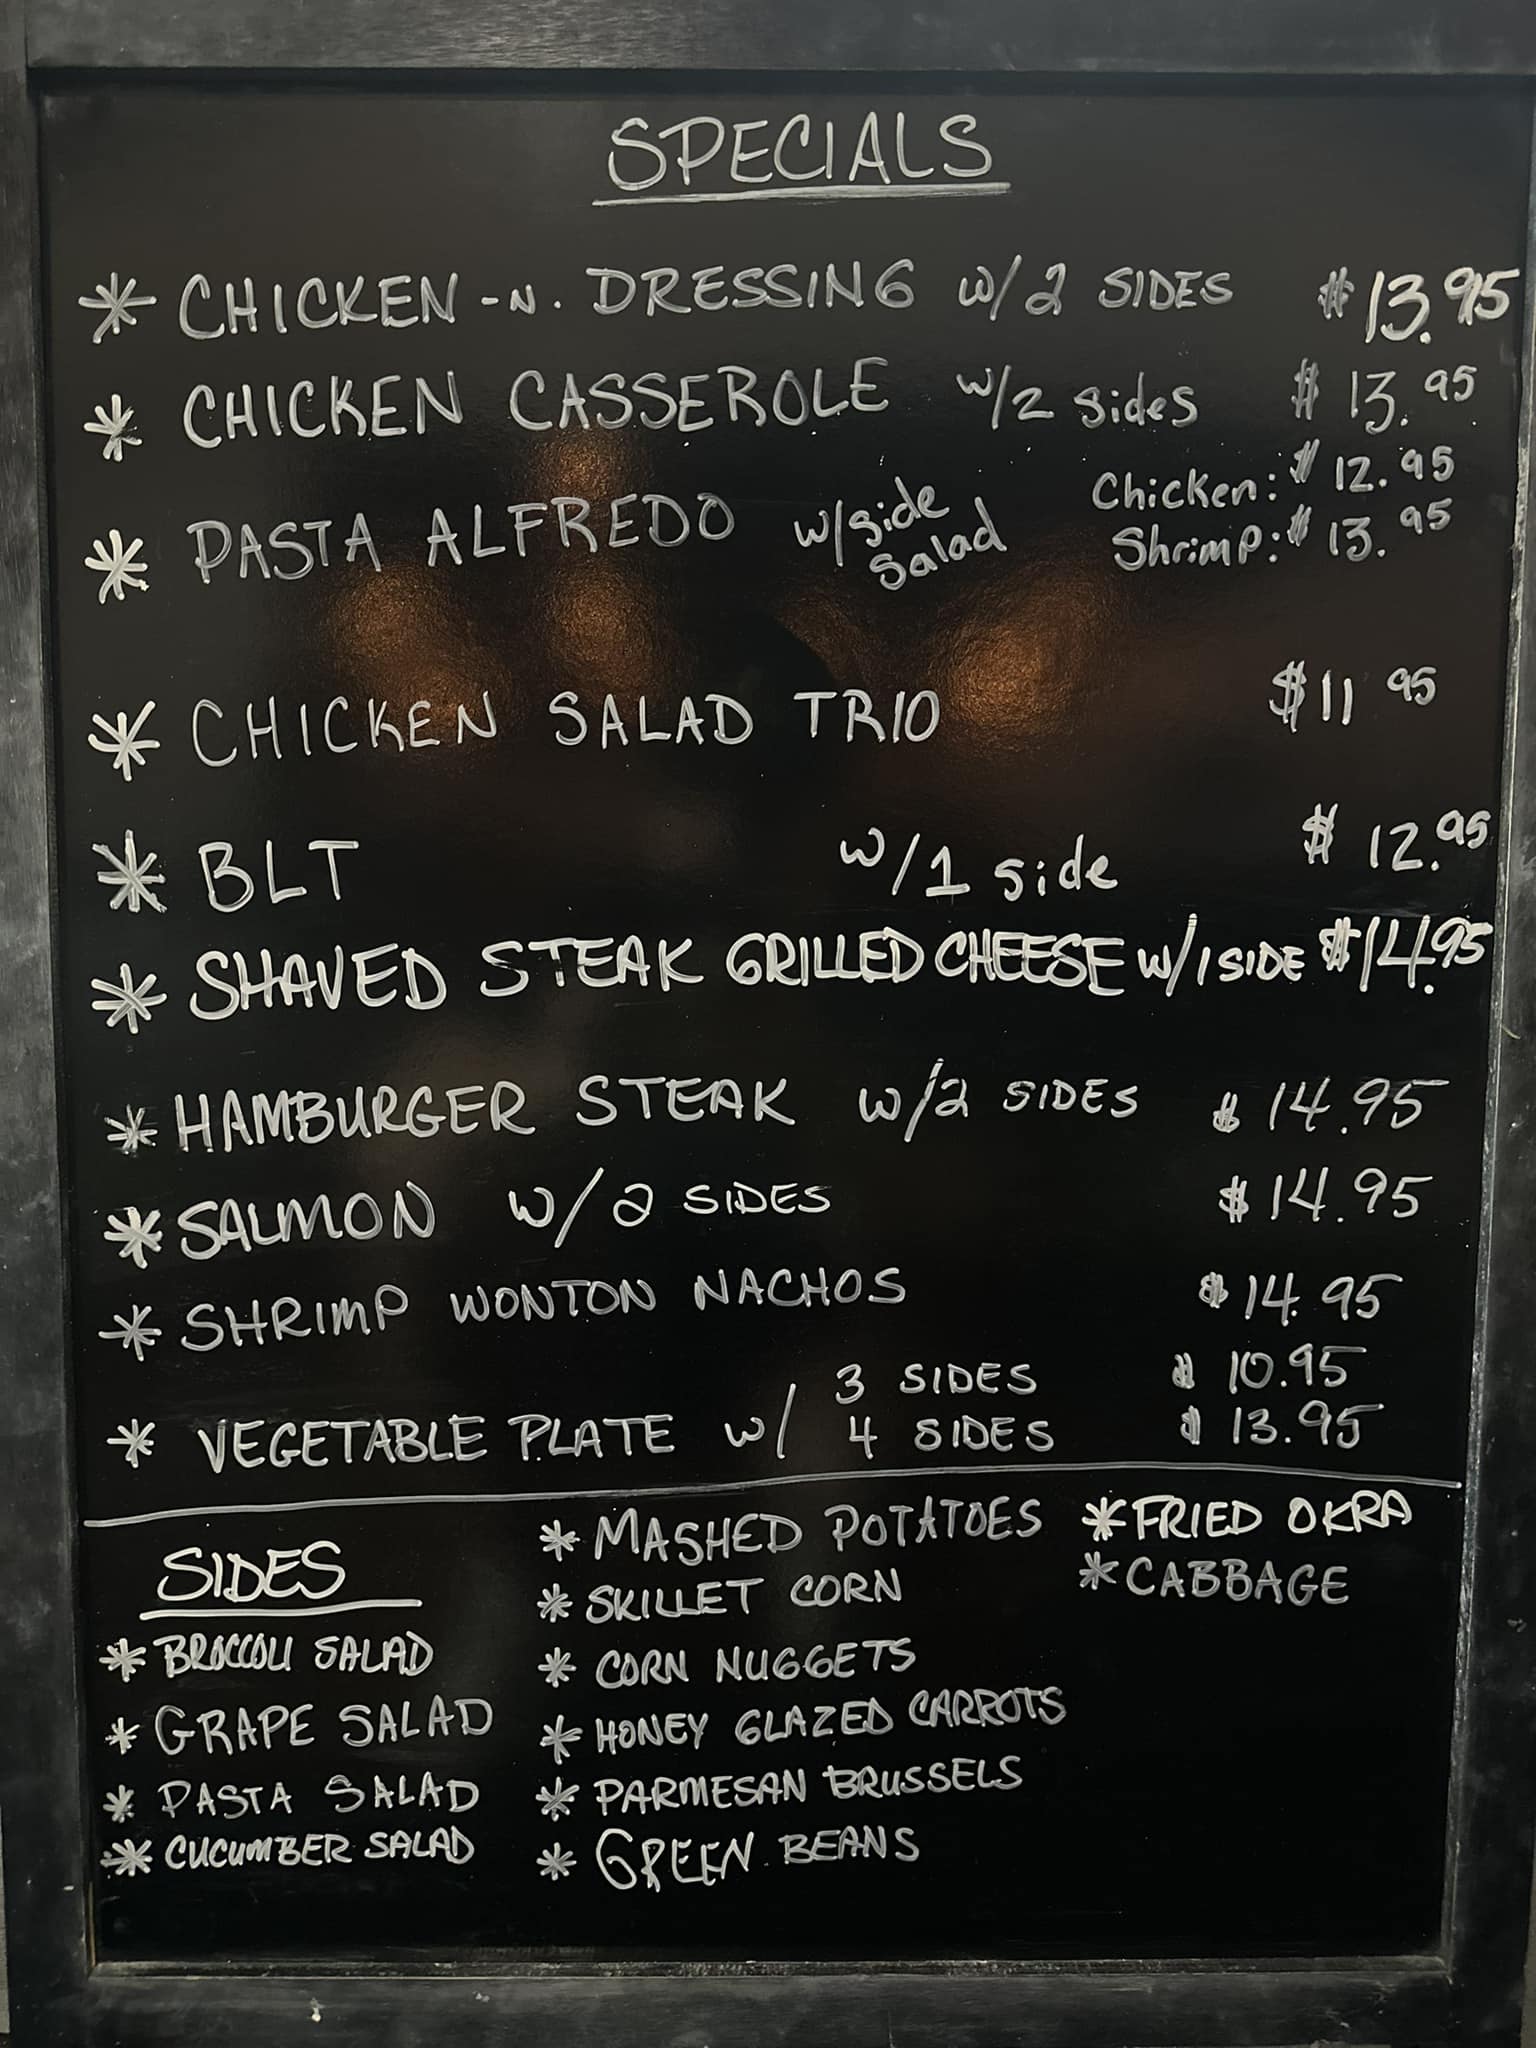 SPECIALS
* CHICKEN -N. DRESSING W/2 SIDES $13.95
* CHICKEN CASSEROLE W/2 sides $13.95
* PASTA ALFREDO w/side Salad Chicken: $12.95
Shrimp: $13.95
* CHICKEN SALAD TRIO $11 95
* BLT W/1 side $12.95
* SHAVED STEAK GRILLED CHEESE W/1 SIDE $14.95
* HAMBURGER STEAK W/2 SIDES $14.95
* SALMON W/2 SIDES $14.95
* SHRIMP WONTON NACHOS $14.95
* VEGETABLE PLATE W/ 3 SIDES $10.95
4 SIDES $13.95
SIDES
* BROCCOLI SALAD
* GRAPE SALAD
* PASTA SALAD
* CUCUMBER SALAD
* MASHED POTATOES
* SKILLET CORN
* CORN NUGGETS
* HONEY GLAZED CARROTS
* PARMESAN BRUSSELS
* GREEN BEANS
* FRIED OKRA
* CABBAGE